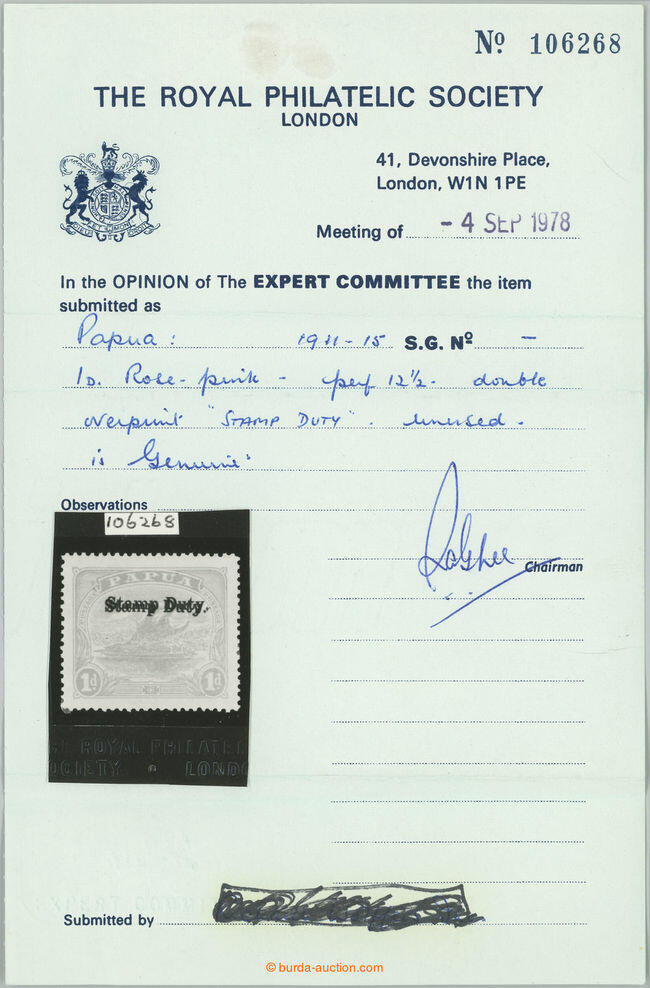 Nº 106268
THE ROYAL PHILATELIC SOCIETY
LONDON
41, Devonshire Place,
London, W1N 1PE
Meeting of - 4 SEP 1978
In the OPINION of The EXPERT COMMITTEE the item
submitted as
Papua: 1911-15 S.G. Nº -
1D. Rose-pink - perf 12½. double
overprint "STAMP DUTY". unused.
is Genuine.
Observations
106268
Chairman
PAPUA
Stamp Duty.
Stamp Duty.
1d 1d
ROYAL PHILATEL
OCIETY LOND
Submitted by
© burda-auction.com